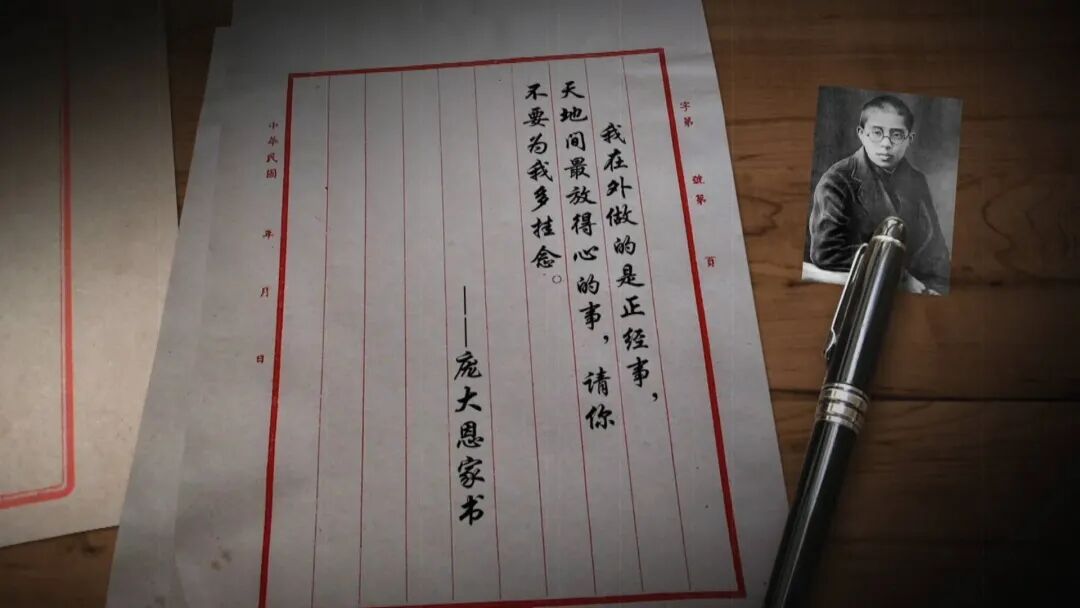 字第 號第 頁
我在外做的是正经事，
天地间最放得心的事，请你
不要为我多挂念。
——庞大恩家书
中華民國 年 月 日